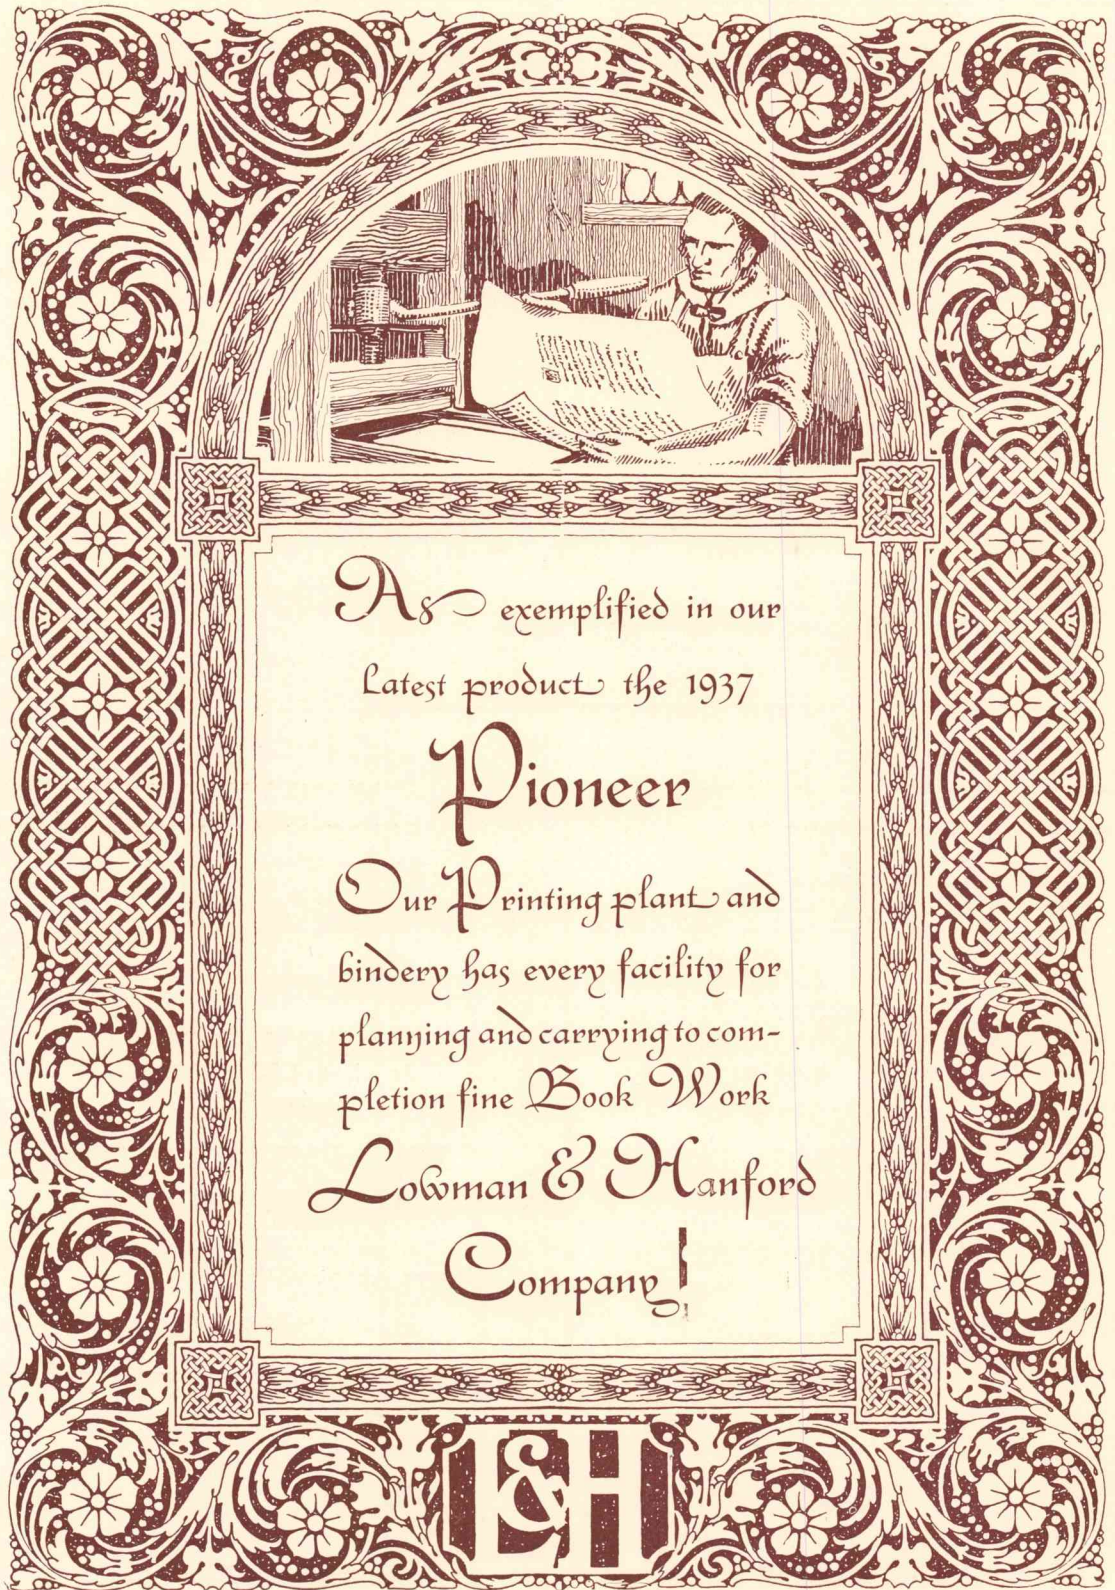 As exemplified in our
latest product the 1937
Pioneer
Our Printing plant and
bindery has every facility for
planning and carrying to com-
pletion fine Book Work
Lowman & Hanford
Company
L&H